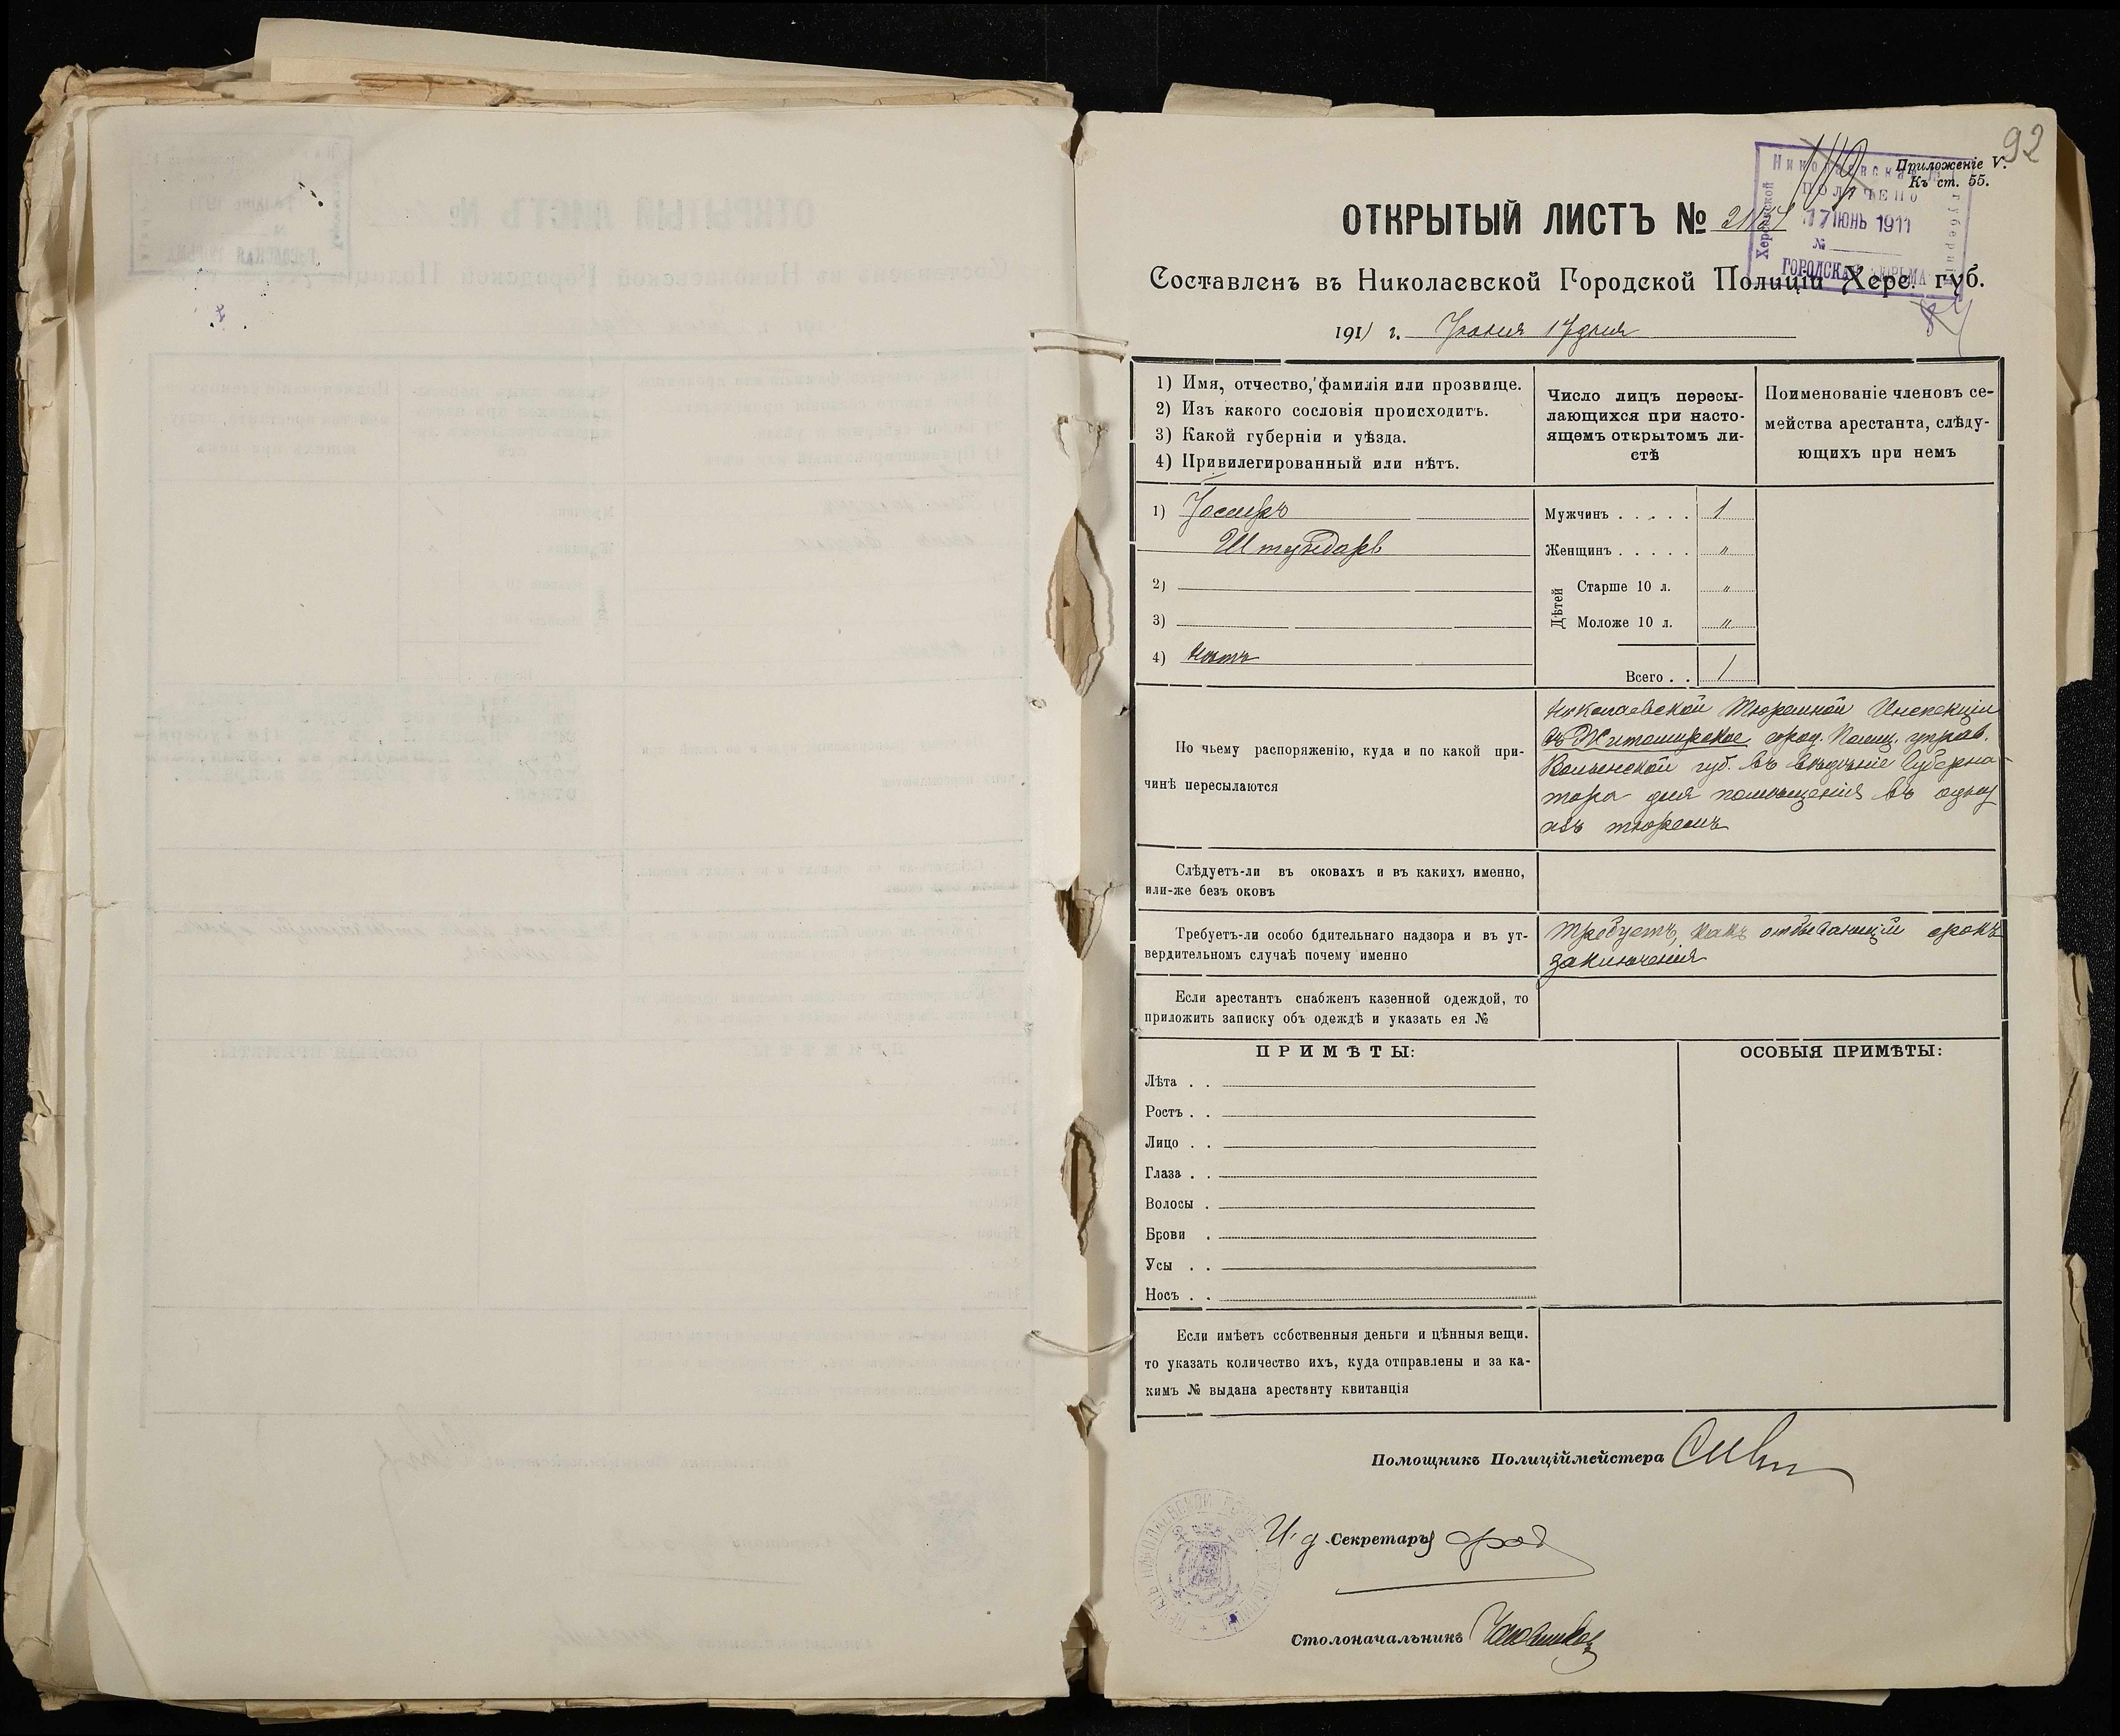 92
Приложеніе V.
Къ ст. 55.
Николаевская
ПОЛУЧЕНО
17 ІЮНЬ 1911
№
ГОРОДСКАЯ ТЮРЬМА
Херсонской
губерніи
ОТКРЫТЫЙ ЛИСТЪ №
Составленъ въ Николаевской Городской Полиціи Херс. губ.
1911 г. Іюня 17 дня
1) Имя, отчество, фамилія или прозвище.
2) Изъ какого сословія происходитъ.
3) Какой губерніи и уѣзда.
4) Привилегированный или нѣтъ.
Число лицъ пересы-
лающихся при насто-
ящемъ открытомъ ли-
стѣ
Поименованіе членовъ се-
мейства арестанта, слѣду-
ющихъ при немъ
1) Іосифъ
Штундаръ
2)
3)
4) Нѣтъ
Мужчинъ . . . . . 1
Женщинъ . . . . . "
Дѣтей
Старше 10 л. "
Моложе 10 л. "
Всего . . 1
По чьему распоряженію, куда и по какой при-
чинѣ пересылаются
Николаевской Тюремной Инспекціи
въ Житомирское город. Полиц. управ.
Волынской губ. въ вѣдѣніе Губерна-
тора для помѣщенія въ одну
изъ тюремъ
Слѣдуетъ-ли въ оковахъ и въ какихъ именно,
или-же безъ оковъ
Требуетъ-ли особо бдительнаго надзора и въ ут-
вердительномъ случаѣ почему именно
Требуетъ, какъ отбывающій срокъ
заключенія
Если арестантъ снабженъ казенной одеждой, то
приложить записку объ одеждѣ и указать ея №
ПРИМѢТЫ:
ОСОБЫЯ ПРИМѢТЫ:
Лѣта . .
Ростъ . .
Лицо . .
Глаза . .
Волосы .
Брови .
Усы . .
Носъ . .
Если имѣетъ собственныя деньги и цѣнныя вещи.
то указать количество ихъ, куда отправлены и за ка-
кимъ № выдана арестанту квитанція
Помощникъ Полиціймейстера
И. д. Секретаря
Столоначальникъ